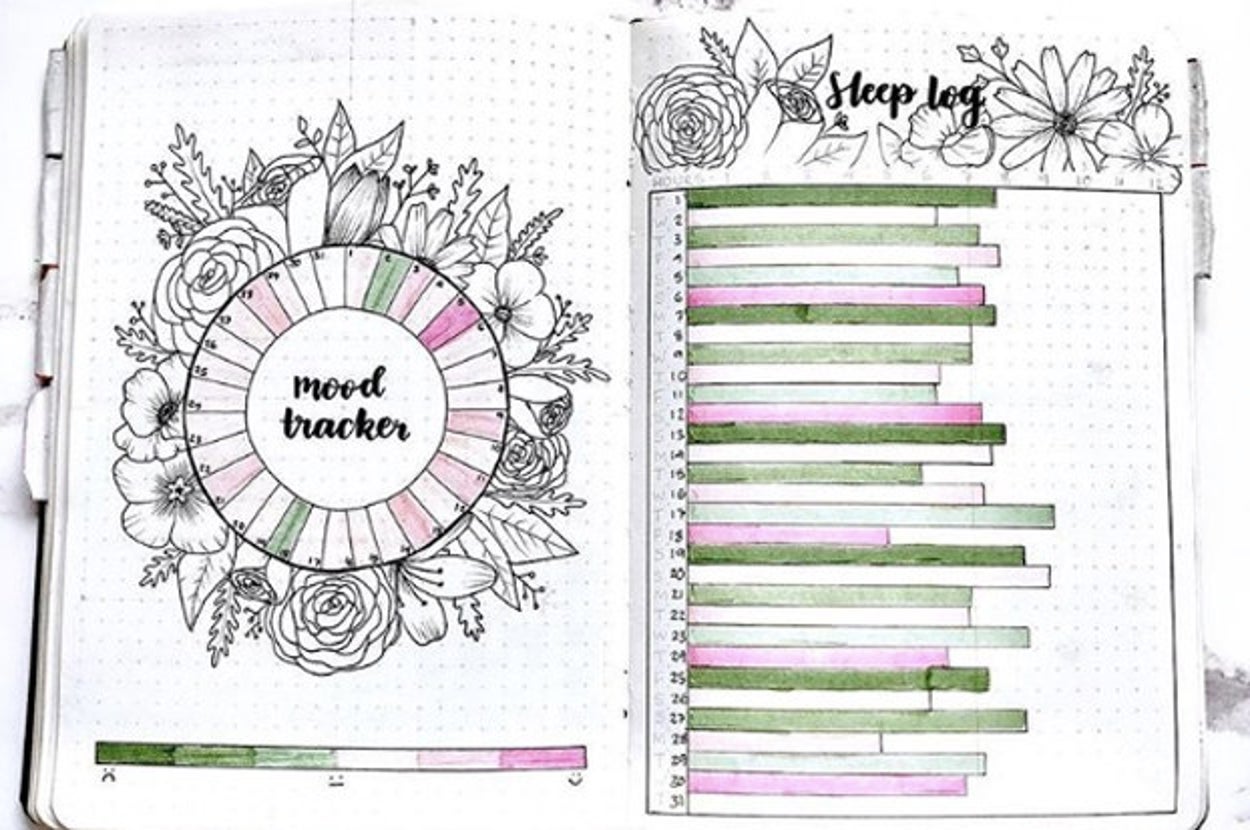 mood
tracker
Sleep log
HOURS 1 2 3 4 5 6 7 8 9 10 11 12
T 1
W 2
T 3
F 4
S 5
S 6
M 7
T 8
W 9
T 10
F 11
S 12
S 13
M 14
T 15
W 16
T 17
F 18
S 19
S 20
M 21
T 22
W 23
T 24
F 25
S 26
S 27
M 28
T 29
W 30
T 31